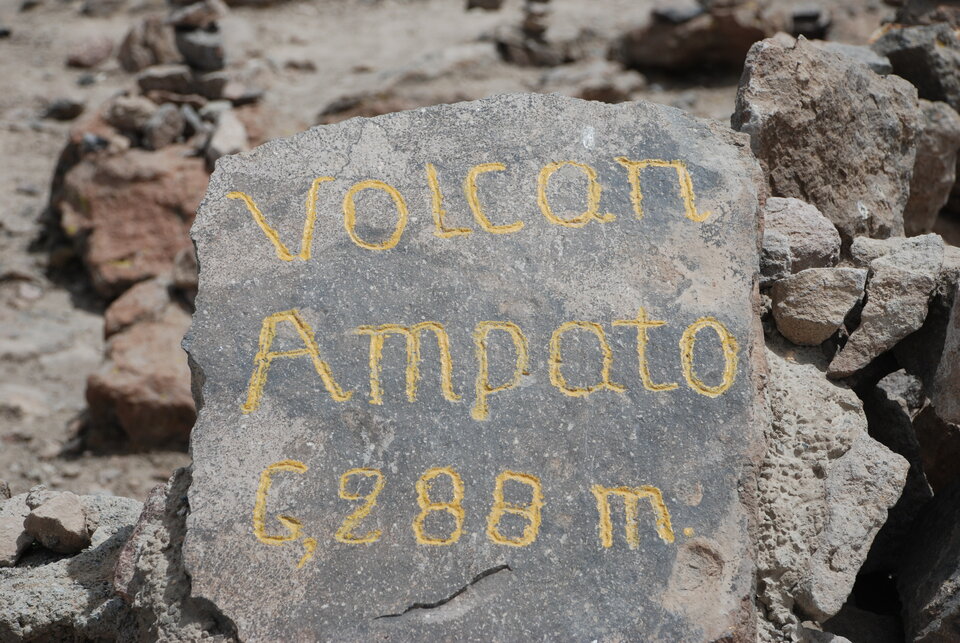 Volcan
Ampato
6,288 m.